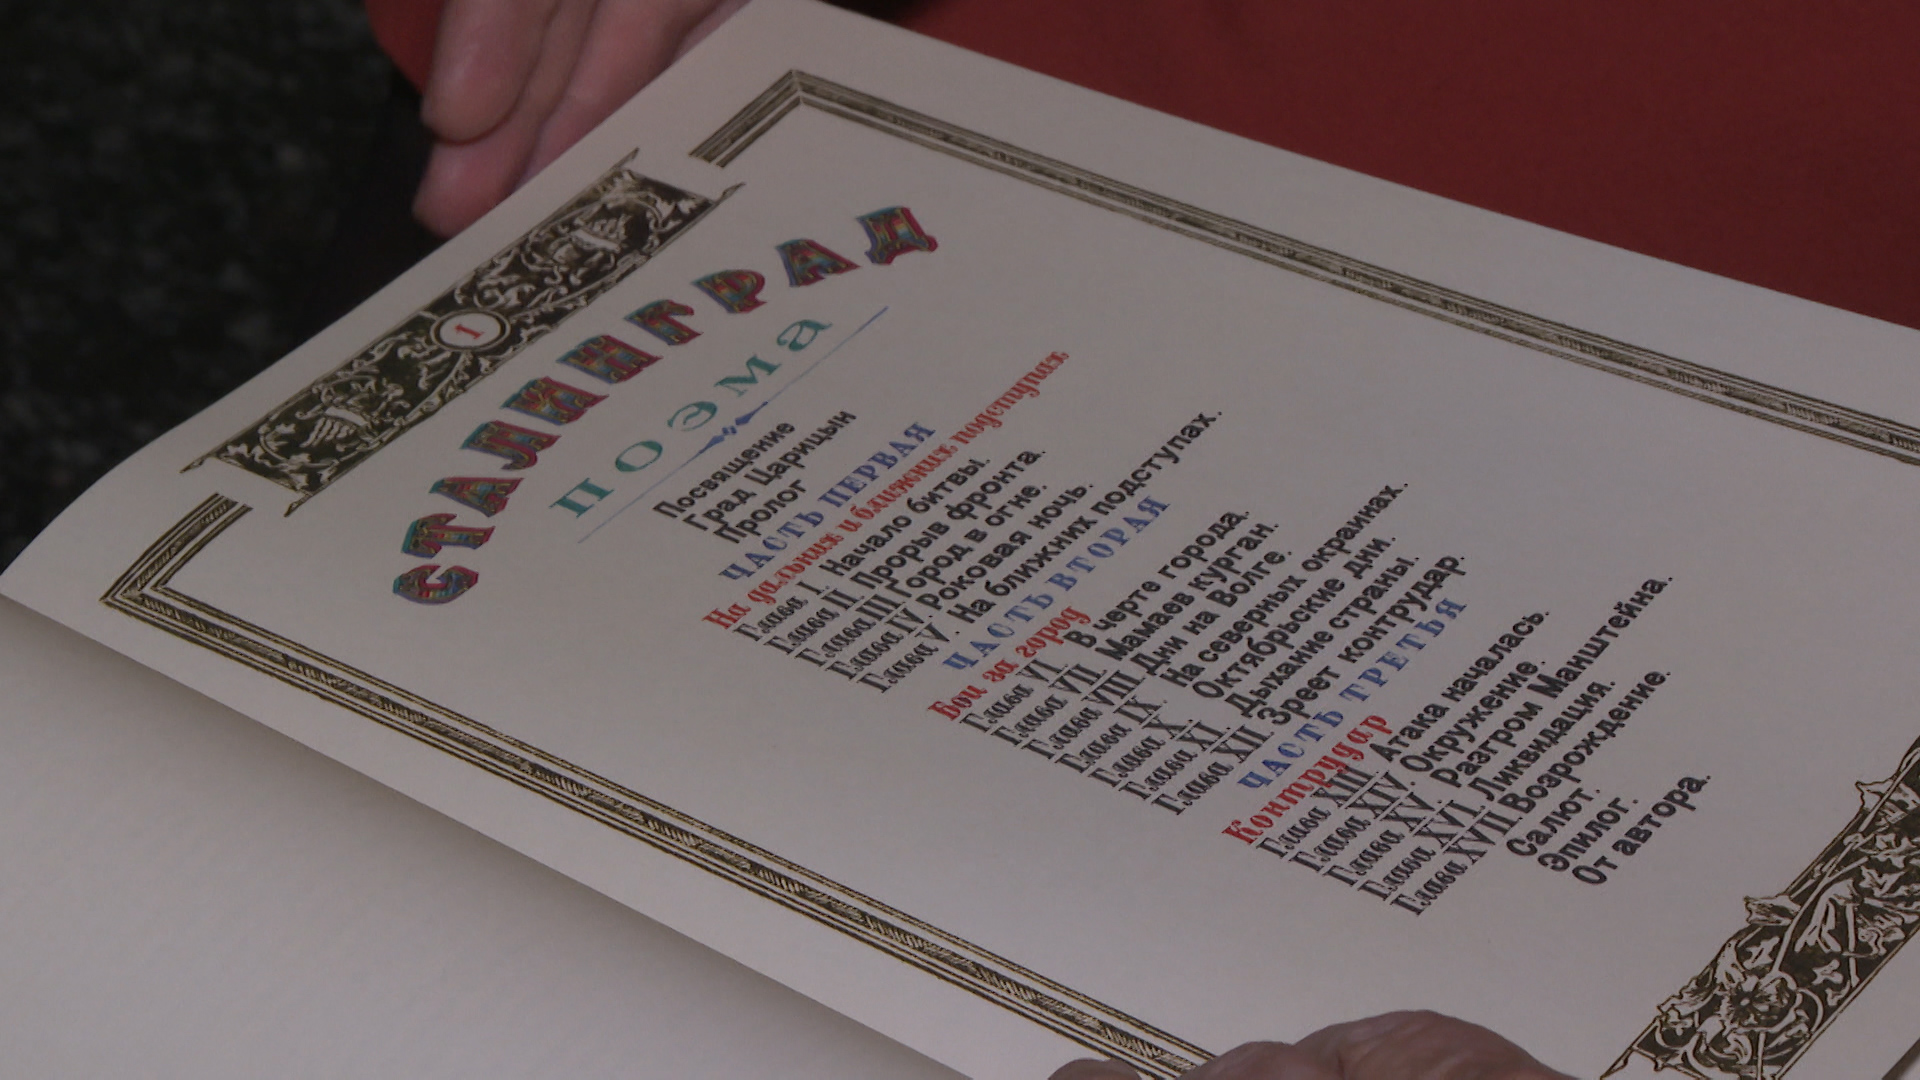 1
СТАЛИНГРАД
ПОЭМА
Посвящение
Град Царицын
Пролог
ЧАСТЬ ПЕРВАЯ
На дальних и ближних подступах
Глава I. Начало битвы.
Глава II. Прорыв фронта.
Глава III Город в огне.
Глава IV Роковая ночь.
Глава V. На ближних подступах.
ЧАСТЬ ВТОРАЯ
Бои за город
Глава VI. В черте города.
Глава VII Мамаев курган.
Глава VIII Дни на Волге.
Глава IX. На северных окраинах.
Глава X. Октябрьские дни.
Глава XI. Дыхание страны.
Глава XII Зреет контрудар.
ЧАСТЬ ТРЕТЬЯ
Контрудар
Глава XIII. Атака началась.
Глава XIV Окружение.
Глава XV. Разгром Манштейна.
Глава XVI. Ликвидация.
Глава XVII. Возрождение.
Салют.
Эпилог.
От автора.